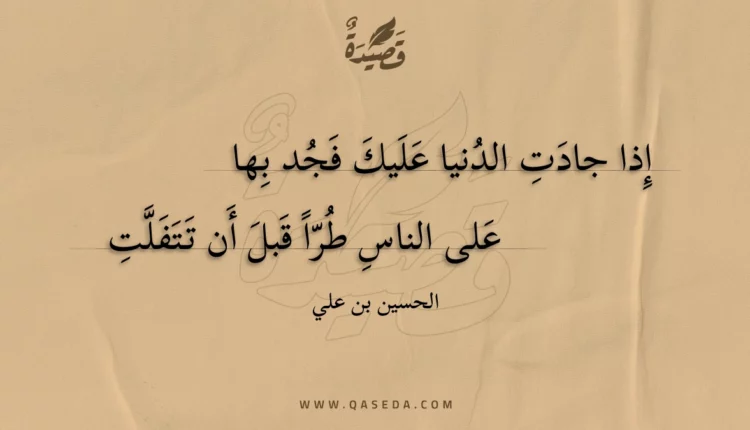 قَصِيدَةٌ
إِذا جادَتِ الدُنيا عَلَيكَ فَجُد بِها
عَلى الناسِ طُرّاً قَبلَ أَن تَتَفَلَّتِ
الحسين بن علي
WWW.QASEDA.COM